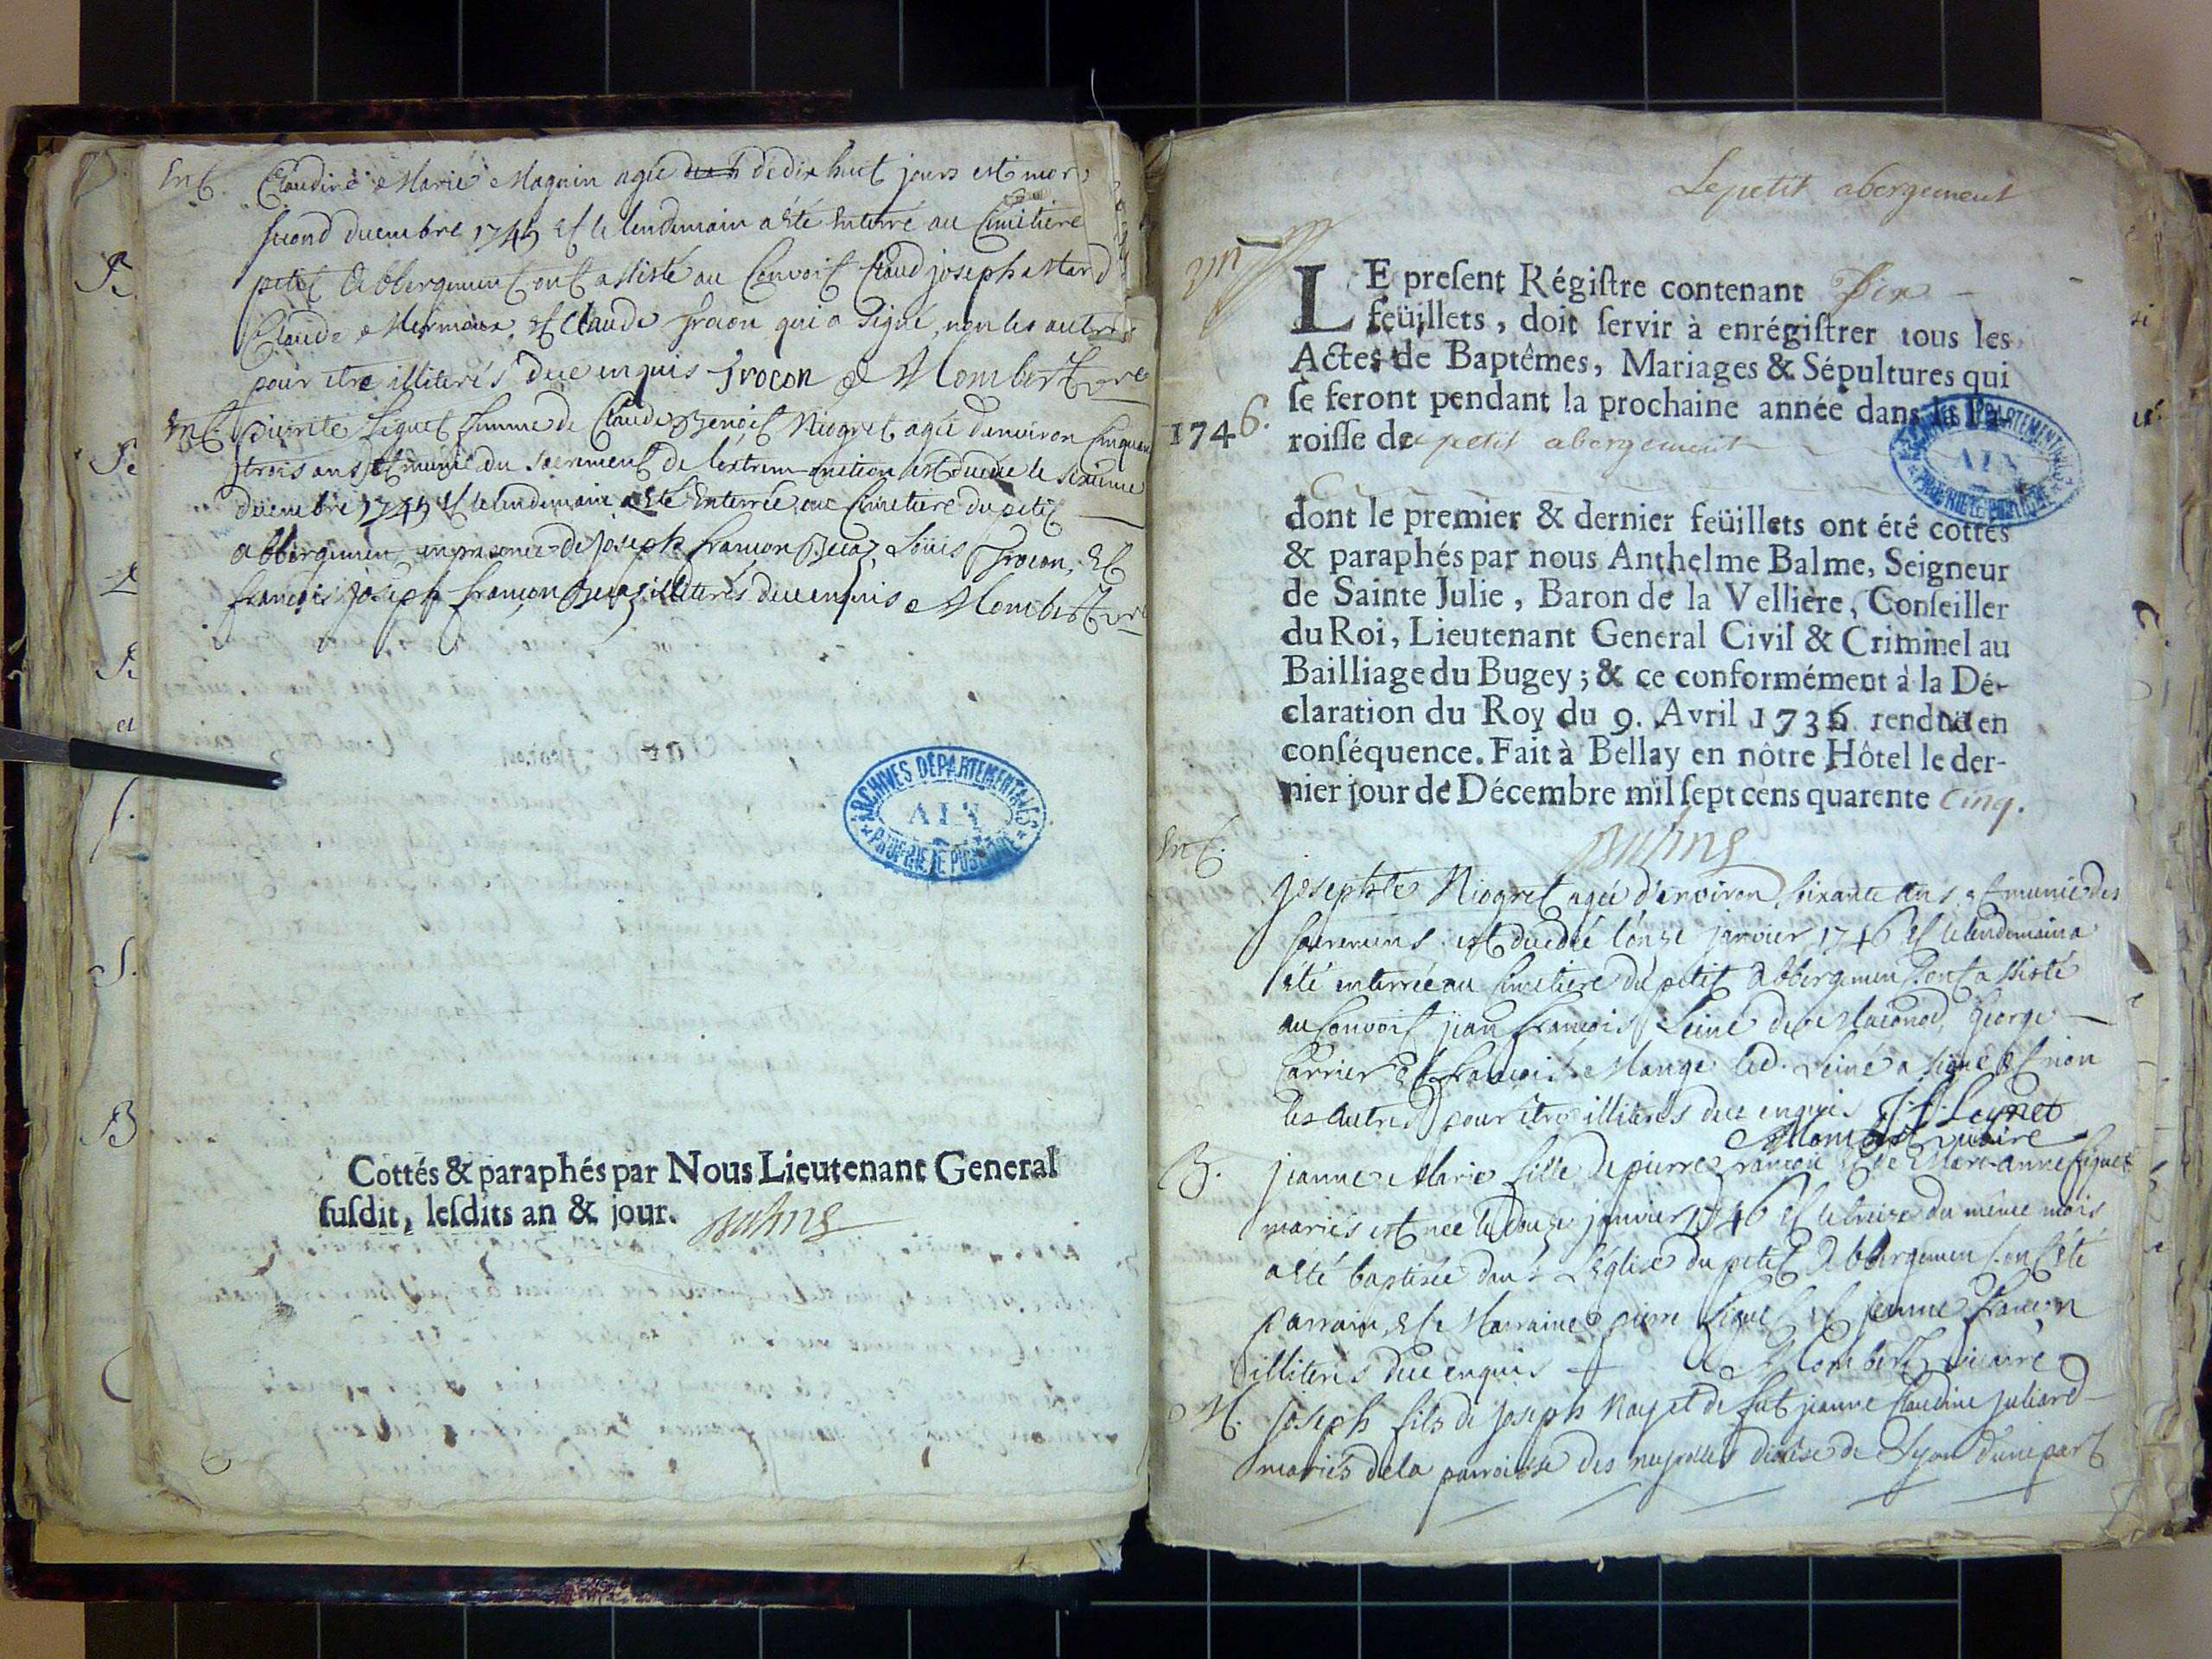 Ent. Claudine Marie Magnin agée de dix huit jours est mor
second decembre 1745 et le lendemain a été enterré au Cimetiere
petit Abbergement ont assisté au Convoit Claud joseph
Claude Mermoux et Claude Jrocon qui a signé, non les autres
pour etre illiterés de ce enquis Jrocon Mombert
Ent. pierrete Liguet femme de Claude Benoit Niogret agée denviron Cinquan
trois ans et munie du sacrement de lextrem onction est decedée le
decembre 1745 et le lendemain a été Enterrée au Cimetiere du petit
abbergement en presence de joseph françon Louis Jrocon, et
françois joseph françon illiterés de ce enquis Mombert
ARCHIVES DEPARTEMENTALES
AIN
PROPRIETE PUBLIQUE
Cottés & paraphés par Nous Lieutenant General
susdit, lesdits an & jour.
Le petit abergement
LE present Régistre contenant Dix
feüillets, doit servir à enrégistrer tous les
Actes de Baptêmes, Mariages & Sépultures qui
se feront pendant la prochaine année dans la Pa-
1746. roisse de petit abergement
ARCHIVES DEPARTEMENTALES
AIN
PROPRIETE PUBLIQUE
dont le premier & dernier feüillets ont été cottés
& paraphés par nous Anthelme Balme, Seigneur
de Sainte Julie, Baron de la Velliere, Conseiller
du Roi, Lieutenant General Civil & Criminel au
Bailliage du Bugey; & ce conformément à la Dé-
claration du Roy du 9. Avril 1736 renduë en
conséquence. Fait à Bellay en nôtre Hôtel le der-
nier jour de Décembre mil sept cens quarente Cinq.
Ent.
josephte Niogret agée d'environ soixante ans et munie des
sacremens est decedée l'onze janvier 1746 et le lendemain a
été enterrée au Cimetiere du petit Abbergement ont assisté
au Convoit jean françois Leiné de Maconod, George
Carrier et françois Mange led. Leiné a signé et non
les autres pour etre illiterés de ce enquis J. f. Leynet
Mombert vicaire
B. jeanne Marie fille de pierre françon et de Marc-anne Liguet
mariés est née le douze janvier 1746 et le treize du même mois
a été baptisée dans L'église du petit Abbergement ont été
parrain et Marraine pierre Liguet et jeanne françon
illiterés de ce enquis Mombert vicaire
M. joseph fils de joseph Nay et de fut jeanne Claudine juliard
mariés de la parroisse des neyrolles diocise de Lyon d'une part